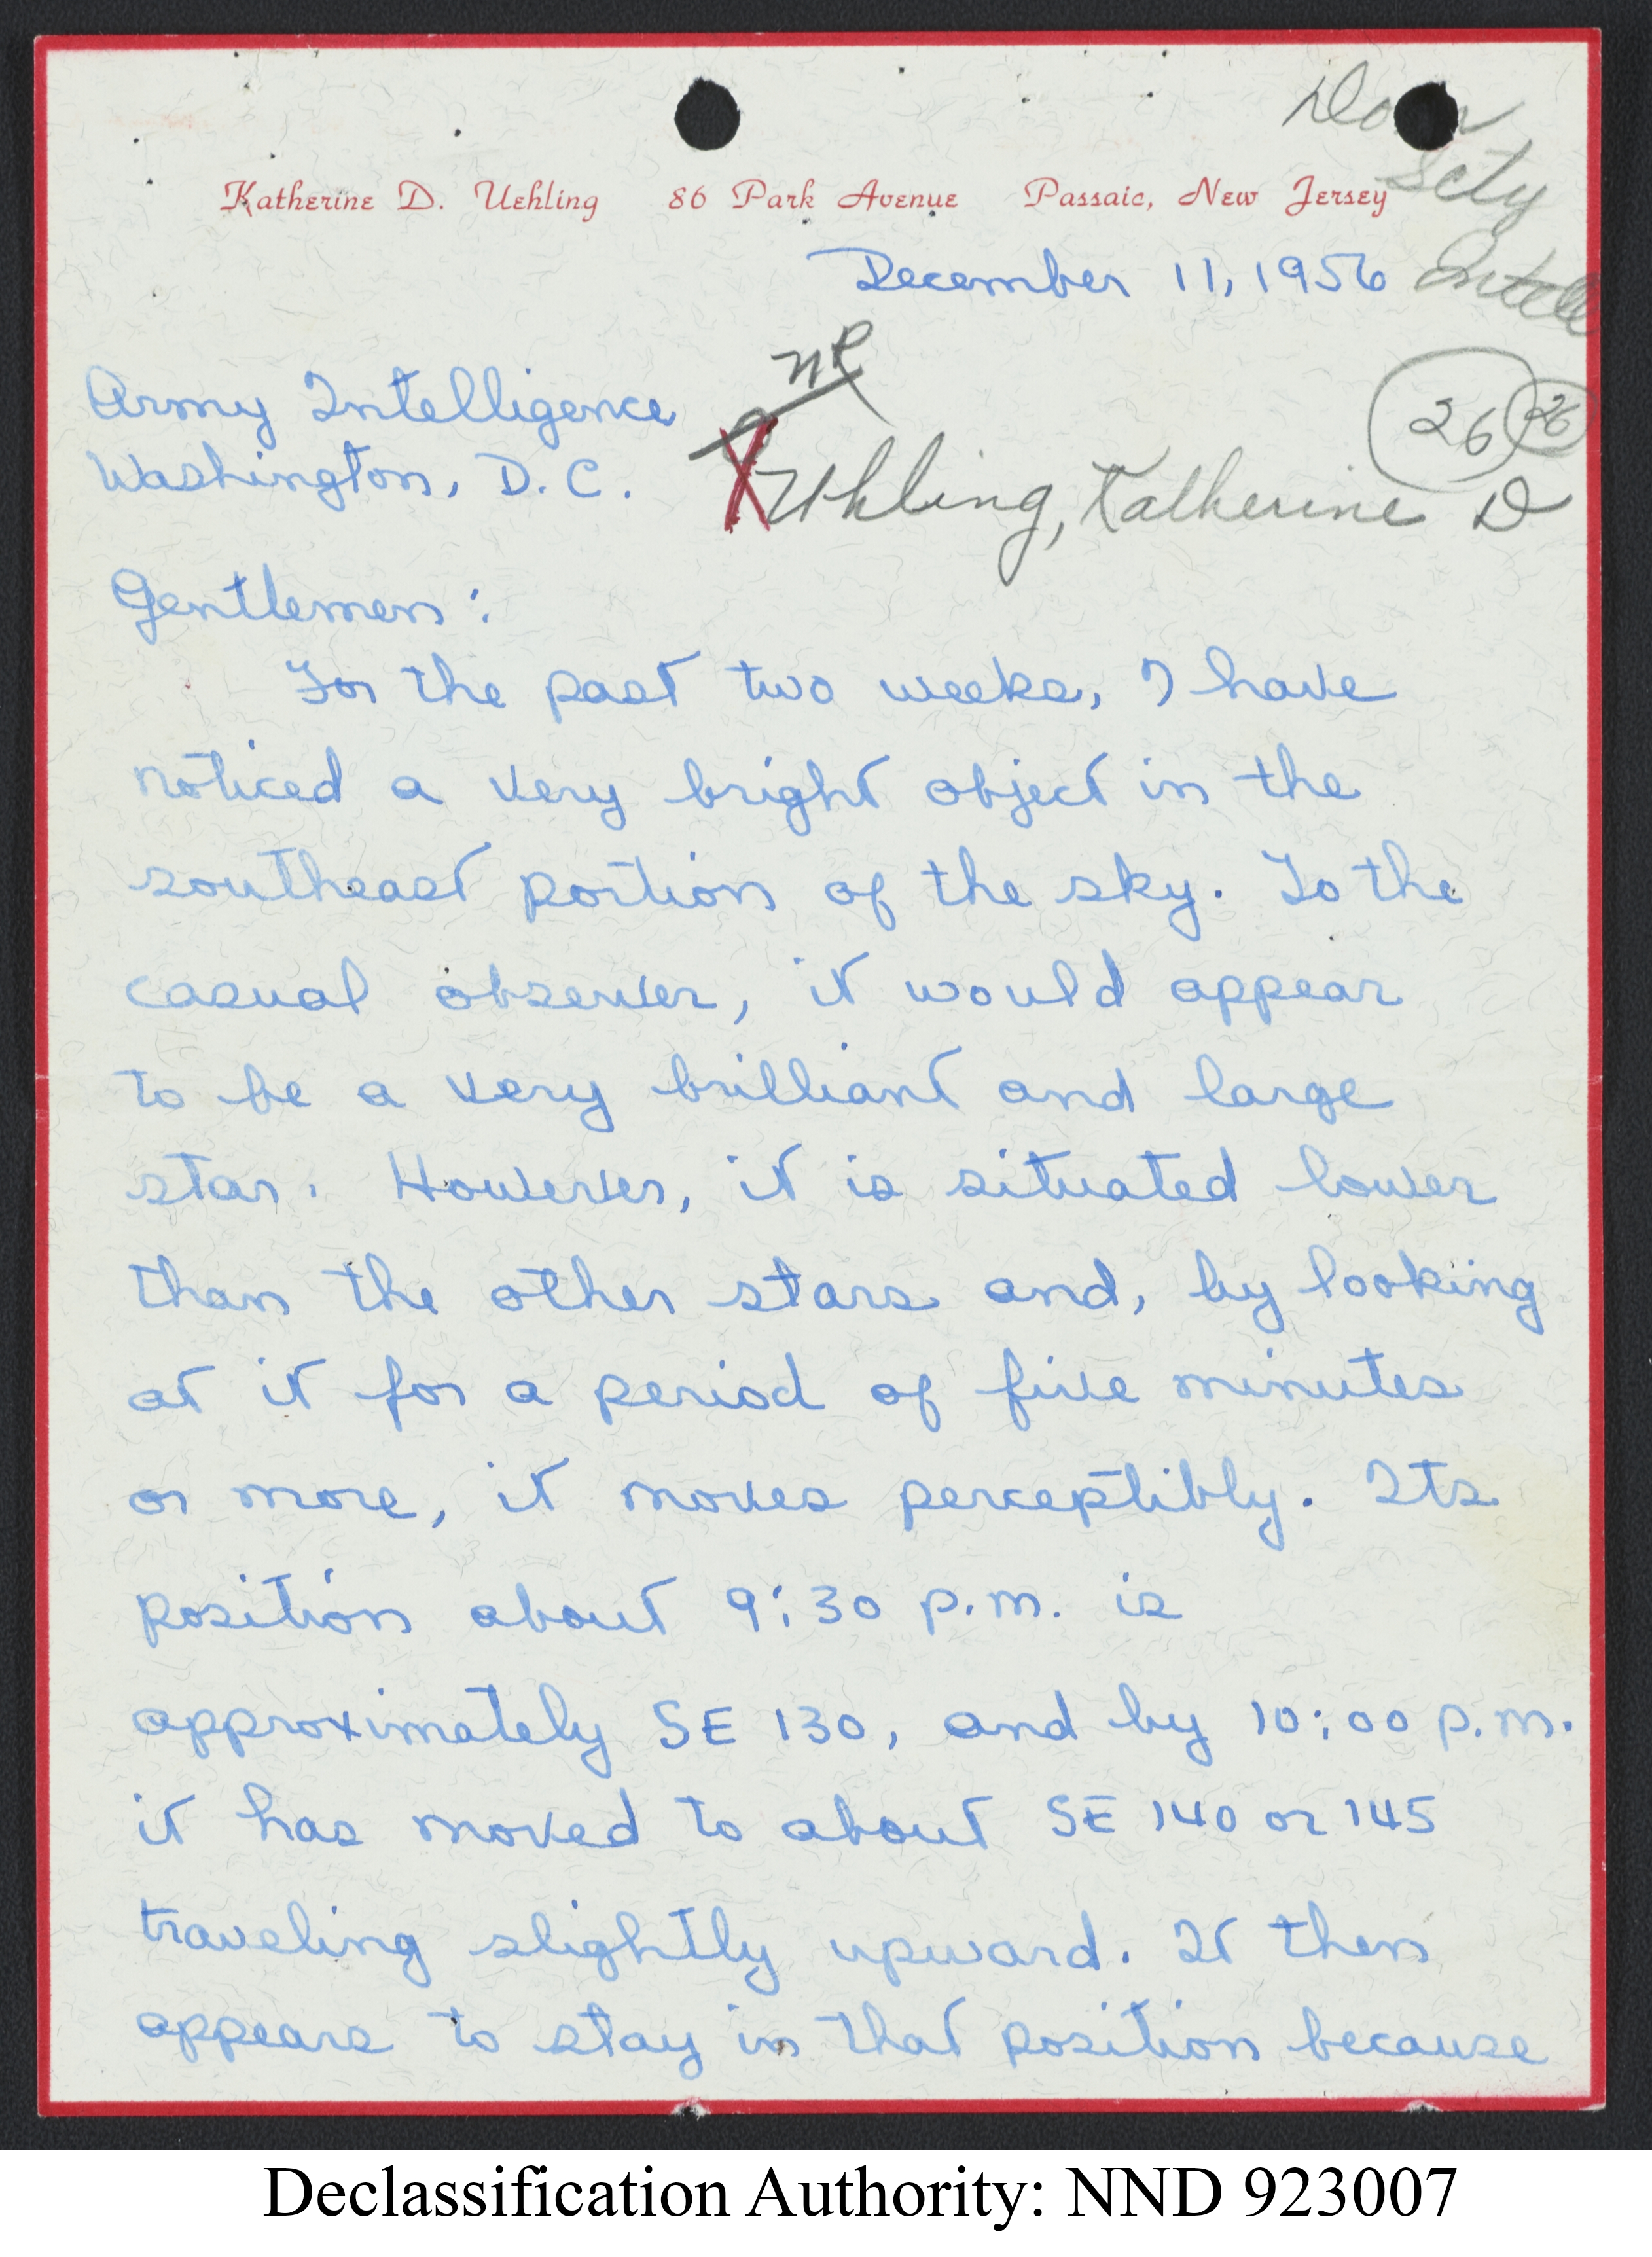 Scty
Katherine D. Uehling 86 Park Avenue Passaic, New Jersey
December 11, 1956
Intell
NR
Army Intelligence
26 26
Washington, D.C.
X Uhling, Katherine D
Gentlemen:
For the past two weeks, I have
noticed a very bright object in the
southeast portion of the sky. To the
casual observer, it would appear
to be a very brilliant and large
star. However, it is situated lower
than the other stars and, by looking
at it for a period of five minutes
or more, it moves perceptibly. Its
position about 9:30 p.m. is
approximately SE 130, and by 10:00 p.m.
it has moved to about SE 140 or 145
traveling slightly upward. It then
appears to stay in that position because
Declassification Authority: NND 923007